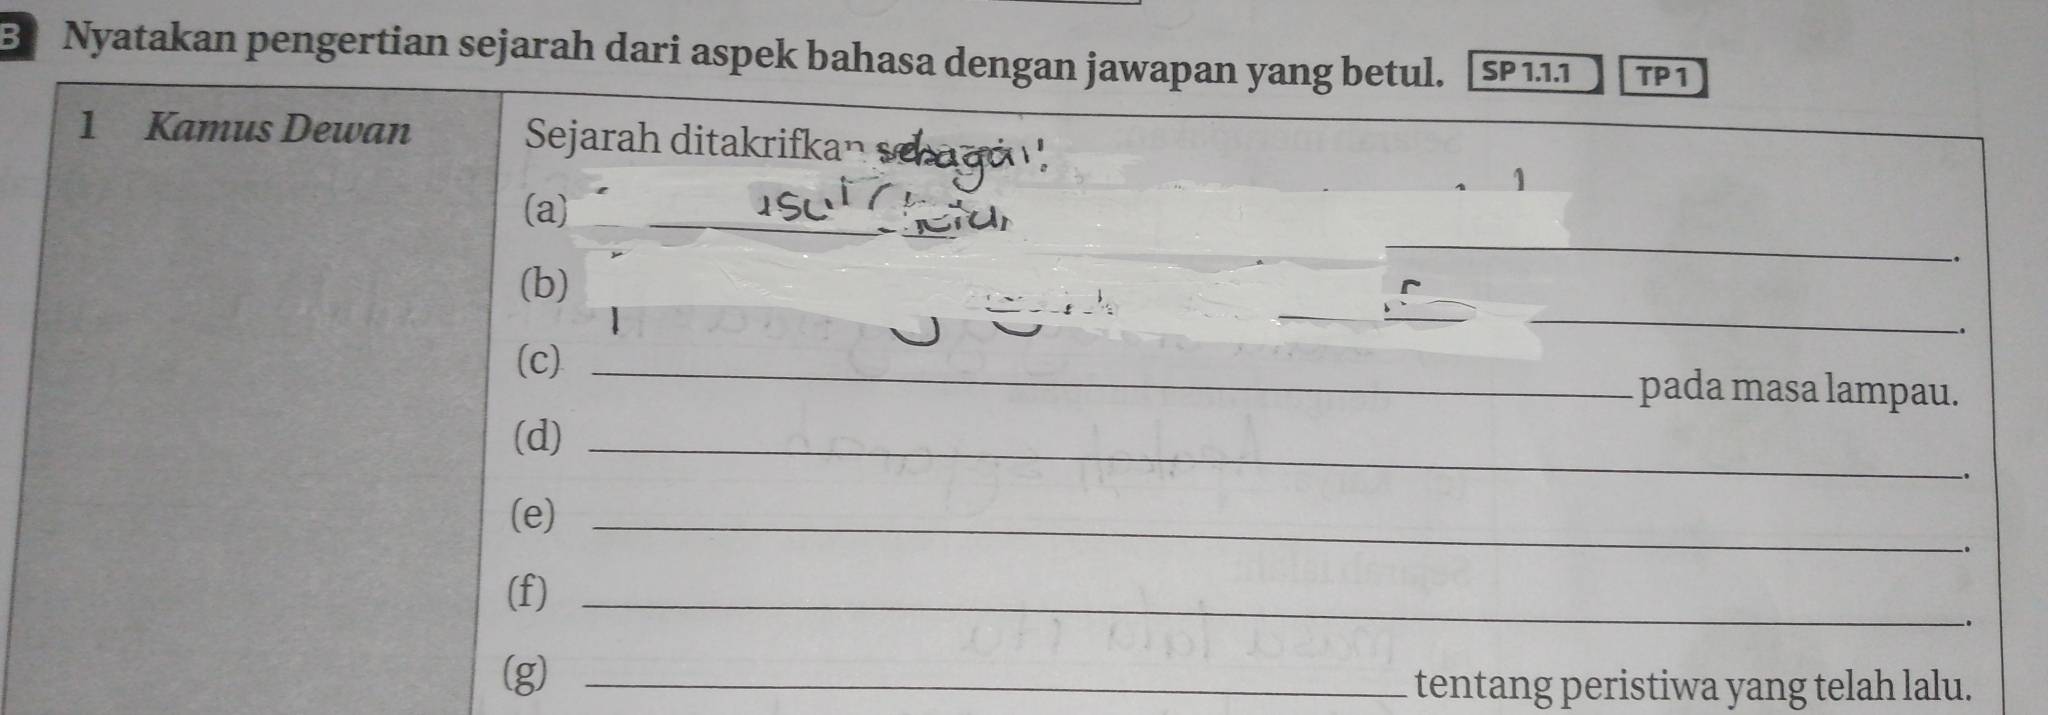 B Nyatakan pengertian sejarah dari aspek bahasa dengan jawapan yang betul. SP 1.1.1 TP 1
1 Kamus Dewan
Sejarah ditakrifkan sebagai:
(a) .
(b) .
(c) pada masa lampau.
(d) .
(e) .
(f) .
(g) tentang peristiwa yang telah lalu.